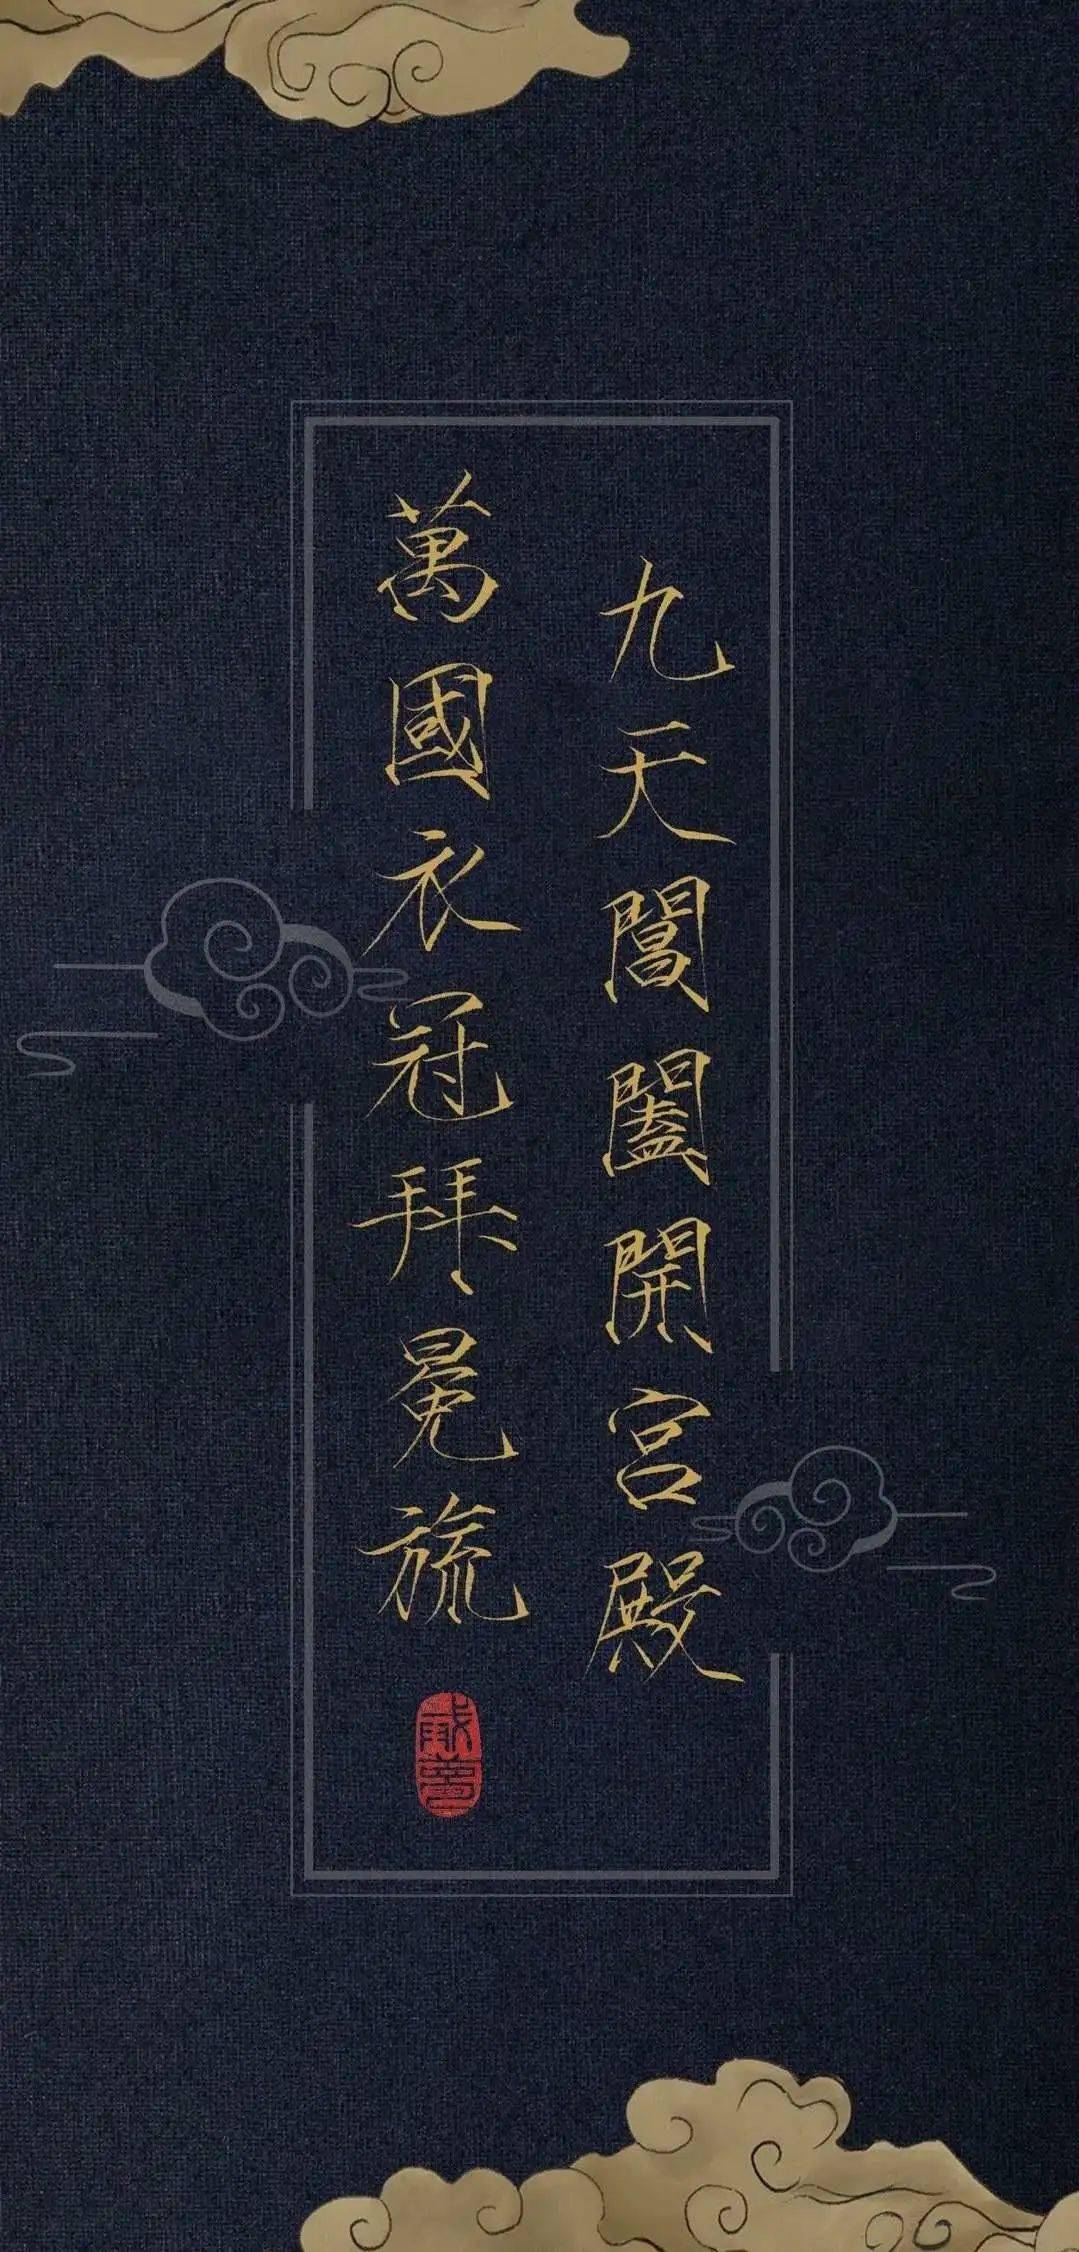 九天閶闔開宫殿
萬國衣冠拜冕旒